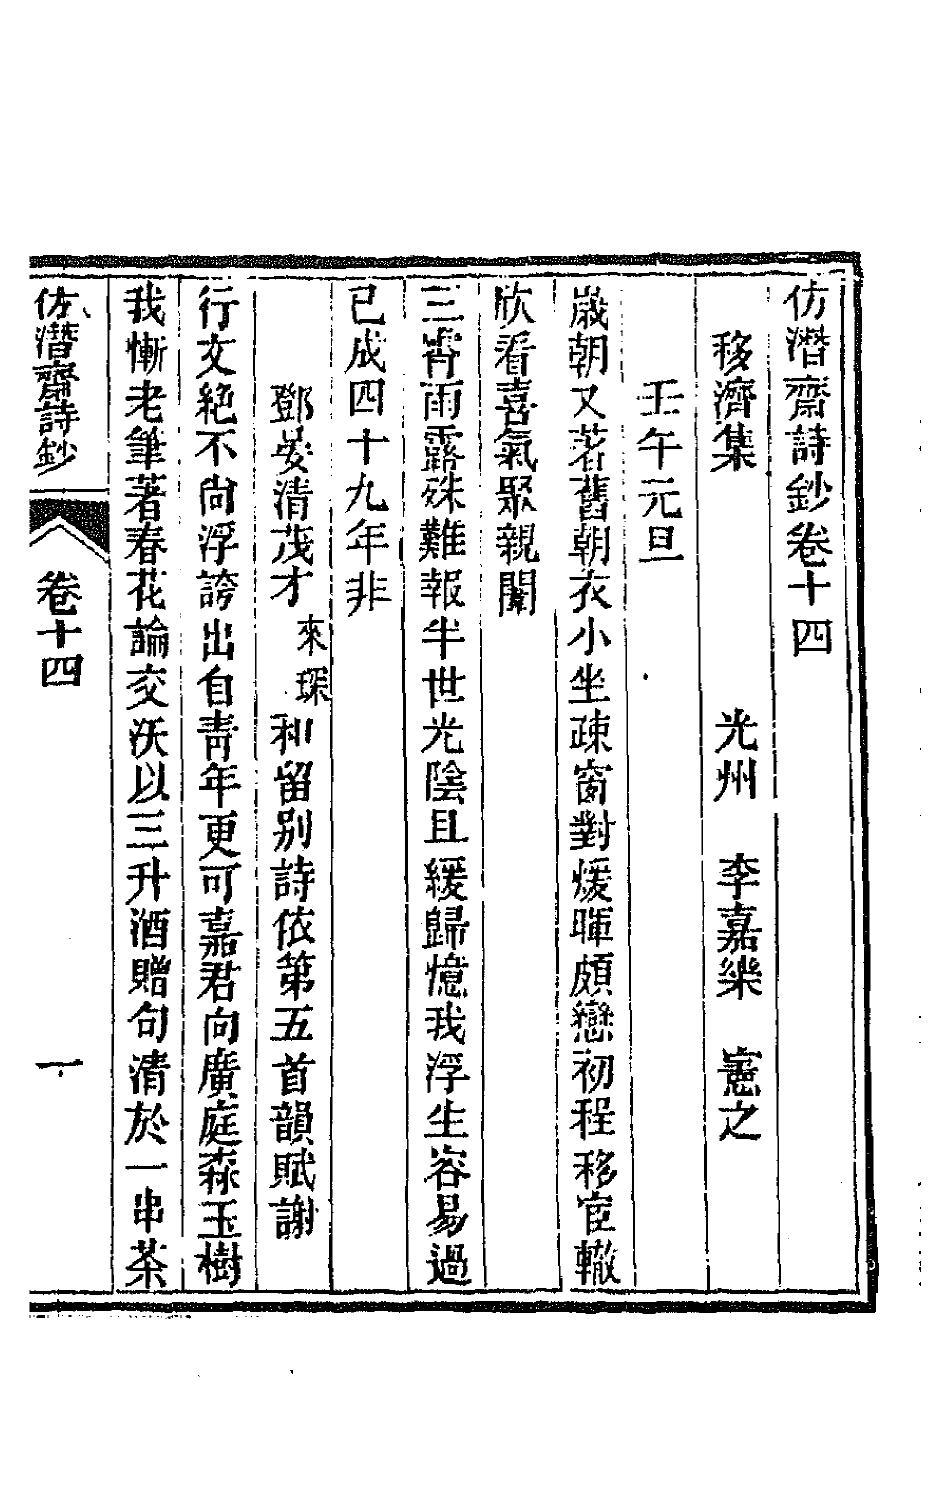 仿潛齋詩鈔卷十四
移濟集　光州　李嘉樂　憲之
壬午元旦
歲朝又茗舊朝衣小坐疎窗對煖暉頗戀初程移宦轍
欣看喜氣聚親闈
三霄雨露殊難報半世光陰且緩歸憶我浮生容易過
已成四十九年非
鄧晏清茂才來琛和留別詩依第五首韻賦謝
行文絕不尙浮誇出自青年更可嘉君向廣庭森玉樹
我慚老筆著春花論交沃以三升酒贈句清於一串茶
仿潛齋詩鈔　卷十四　一